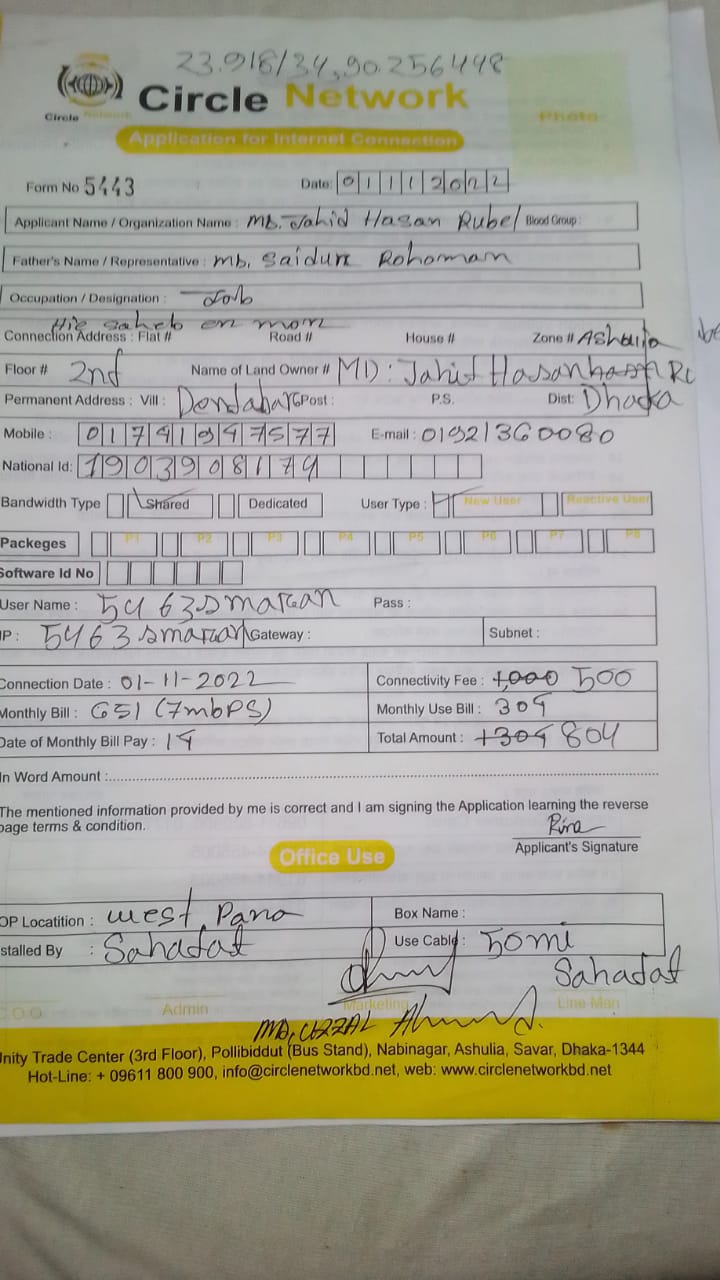 23.918134,90.256448
Circle Network
Circle Network
Photo
Application for Internet Connection
Form No 5443 Date: 01112022
Applicant Name / Organization Name : Md. Jahid Hasan Rubel Blood Group :
Father's Name / Representative : Md. Saidur Rohoman
Occupation / Designation : Job
Connection Address : Flat # Road # House # Zone # Ashulia
Floor # 2nd Name of Land Owner # MD: Jahid Hasan
Permanent Address : Vill : Dendabar Post : P.S. Dist: Dhaka
Mobile : 01741947577 E-mail : 01921360080
National Id: 1903908174
Bandwidth Type Shared Dedicated User Type : New User Reactive User
Packeges P1 P2 P3 P4 P5 P6 P7 P8
Software Id No
User Name : 5463smaran Pass :
IP : 5463smaran Gateway : Subnet :
Connection Date : 01-11-2022 Connectivity Fee : 1,000 500
Monthly Bill : 651 (7mbPS) Monthly Use Bill : 304
Date of Monthly Bill Pay : 14 Total Amount : 1304 804
In Word Amount :
The mentioned information provided by me is correct and I am signing the Application learning the reverse
page terms & condition.
Rina
Applicant's Signature
Office Use
OP Locatition : west Para Box Name :
stalled By : Sahadat Use Cable : 50mi
Sahadat
C.O.O Admin Marketing Line Man
MD, UZZAL Ahmed.
Unity Trade Center (3rd Floor), Pollibiddut (Bus Stand), Nabinagar, Ashulia, Savar, Dhaka-1344
Hot-Line: + 09611 800 900, info@circlenetworkbd.net, web: www.circlenetworkbd.net